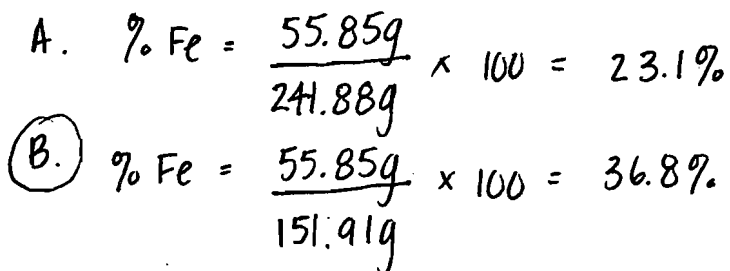 A. % Fe = 55.85g / 241.88g × 100 = 23.1%
B. % Fe = 55.85g / 151.91g × 100 = 36.8%